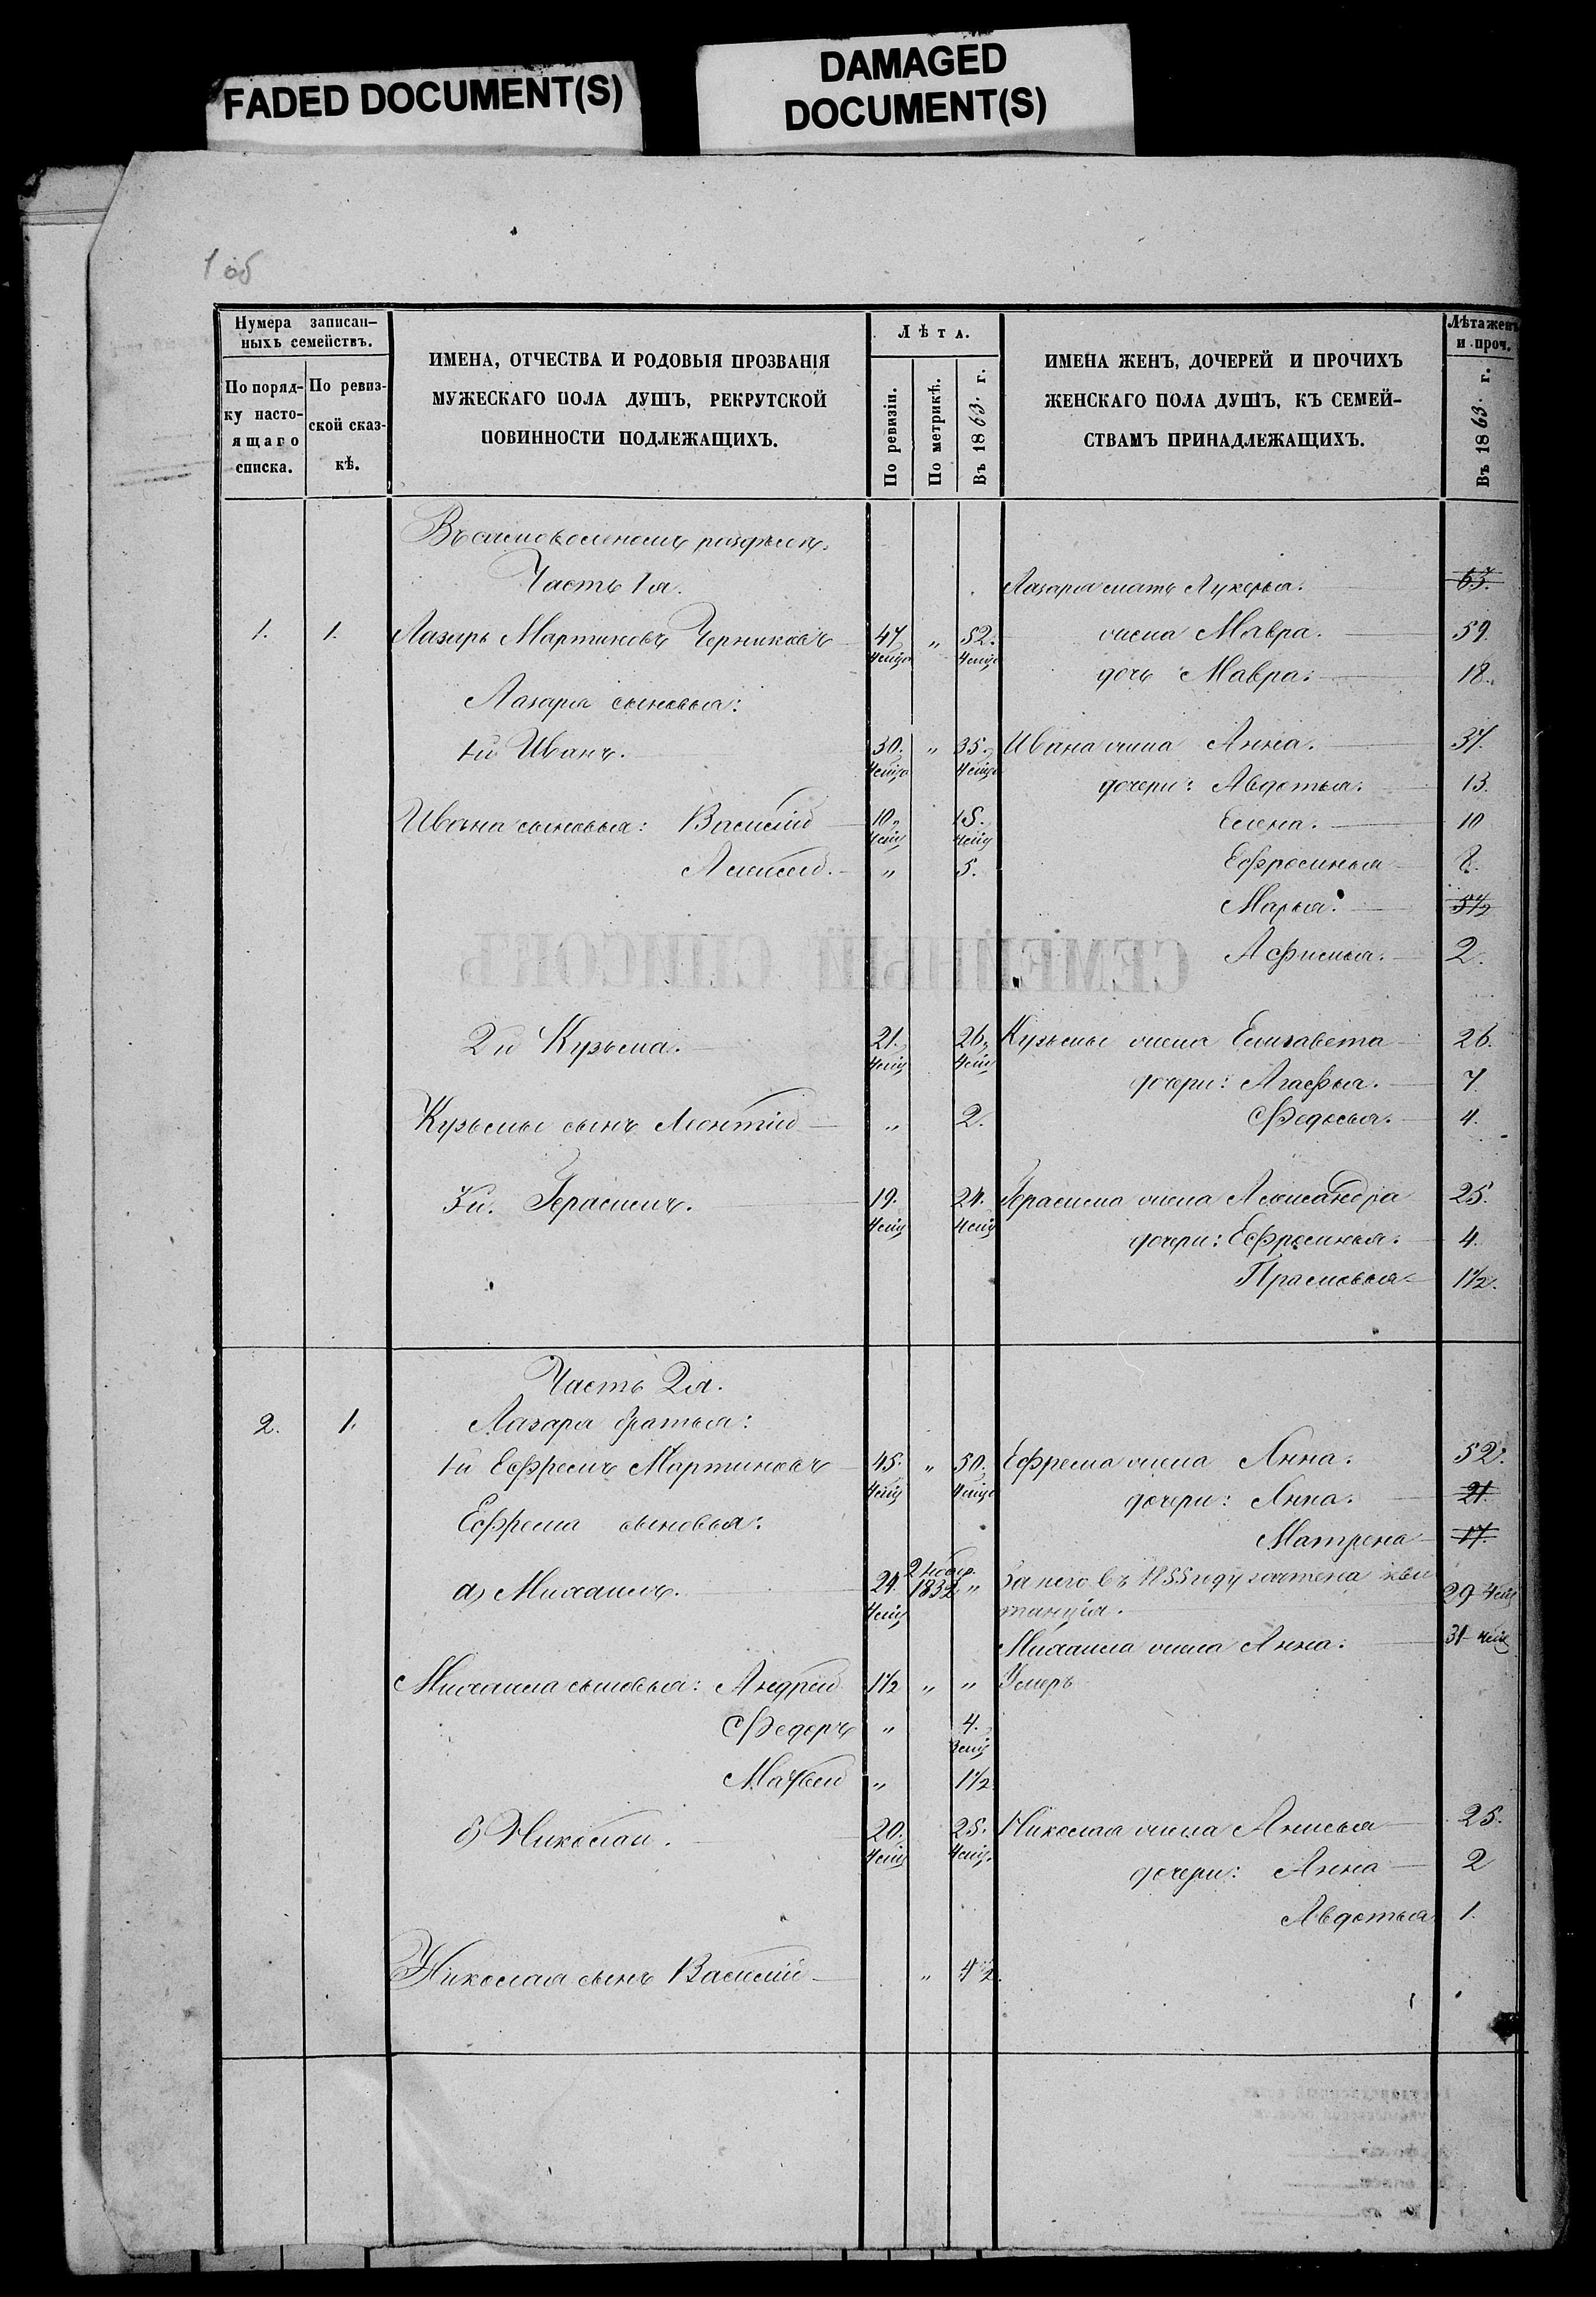 FADED DOCUMENT(S)
DAMAGED
DOCUMENT(S)
1 об
Нумера записан-
ныхъ семействъ.
По поряд-
ку насто-
ящаго
списка.
По ревиз-
ской сказ-
кѣ.
ИМЕНА, ОТЧЕСТВА И РОДОВЫЯ ПРОЗВАНІЯ
МУЖЕСКАГО ПОЛА ДУШЪ, РЕКРУТСКОЙ
ПОВИННОСТИ ПОДЛЕЖАЩИХЪ.
Лѣта.
По ревизіи.
По метрикѣ.
Въ 1863. г.
ИМЕНА ЖЕНЪ, ДОЧЕРЕЙ И ПРОЧИХЪ
ЖЕНСКАГО ПОЛА ДУШЪ, КЪ СЕМЕЙ-
СТВАМЪ ПРИНАДЛЕЖАЩИХЪ.
Лѣта женъ
и проч.
Въ 1863. г.
Въ самовольномъ раздѣлѣ.
Часть 1я. Лазаря мать Лукерья. 63.
1. 1. Лазарь Мартиновъ Черниковъ 47 " 52. жена Мавра. 59.
4 мѣц 4 мѣц дочь Мавра. 18.
Лазаря сыновья:
1й Иванъ. 30. " 35. Ивана жена Анна. 37.
4 мѣц 4 мѣц дочери: Авдотья. 13.
Ивана сыновья: Василій 10. 15. Елена. 10
4 мѣц 4 мѣц
Алексѣй. " 5. Ефросинья 8.
Марья. 5½
Афимья. 2.
2й Кузьма. 21. 26. Кузьмы жена Елизавета 26.
4 мѣц 4 мѣц дочери: Агафья. 7
Кузьмы сынъ Леонтій " 2. Федосья. 4.
3й. Герасимъ. 19. 24. Герасима жена Александра 25.
4 мѣц 4 мѣц дочери: Ефросинья. 4.
Прасковья 1½.
Часть 2я.
2. 1. Лазаря братья:
1й Ефремъ Мартиновъ 45. " 50. Ефрема жена Анна. 52.
4 мѣц 4 мѣц дочери: Анна. 21.
Ефрема сыновья:
Матрена 17.
а) Михаилъ. 24. 2 Нобяр. 1832 " За него въ 1855 году зачтена кви
4 мѣц танція. 29 4 мѣц
Михаила жена Анна. 31
Михаила сыновья: Андрей 1½ " " Умеръ
Федоръ " 4.
мѣц
Матвей " 1½
б) Николай. 20. 25. Николая жена Анисья 25.
4 мѣц 4 мѣц. дочери: Анна 2
Авдотья 1.
Николая сынъ Василій " 4½.